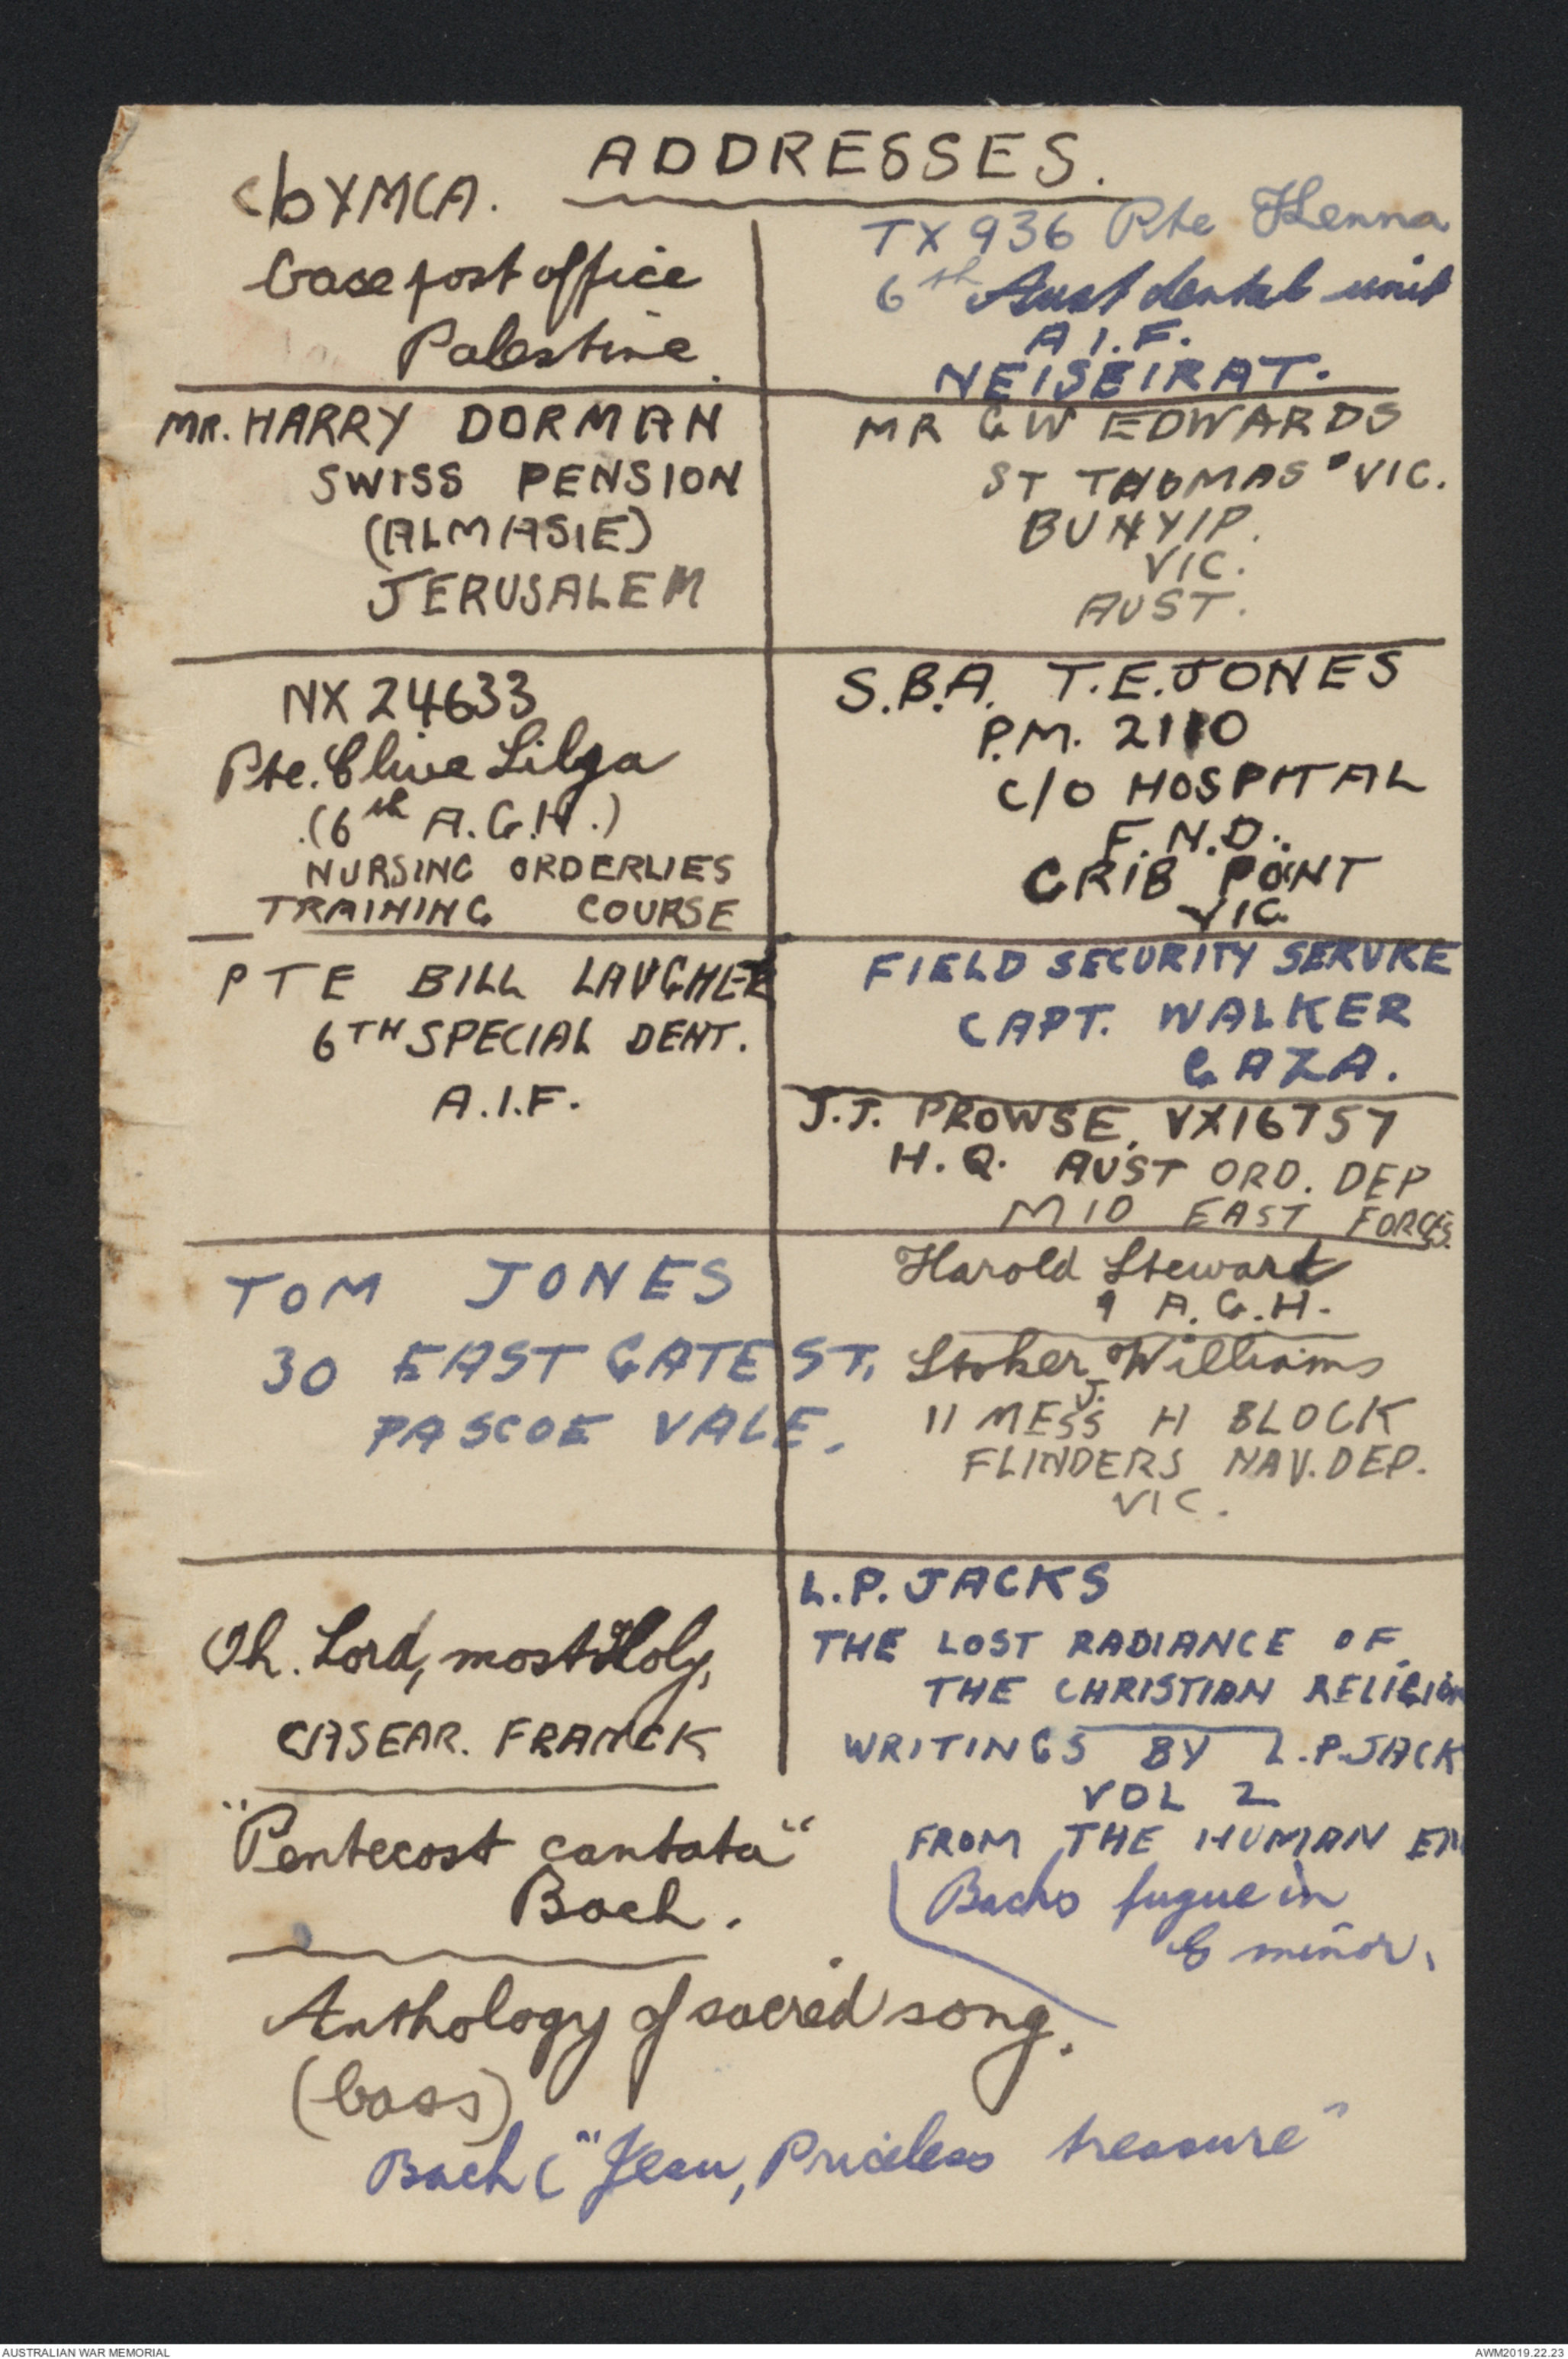 ADDRESSES.
c/o YMCA.
base post office
Palestine.
TX 936 Pte Henna
6th Aust dental unit
A.I.F.
NEISEIRAT.
MR. HARRY DORMAN
SWISS PENSION
(ALMASIE)
JERUSALEM
MR G W EDWARDS
ST THOMAS' VIC.
BUNYIP.
VIC.
AUST.
NX 24633
Pte. Clive Lilga
(6th A.G.H.)
NURSING ORDERLIES
TRAINING COURSE
S.B.A. T.E. JONES
P.M. 2110
C/O HOSPITAL
F.N.D.
CRIB POINT
VIC
PTE BILL LAUGHER
6TH SPECIAL DENT.
A.I.F.
FIELD SECURITY SERVICE
CAPT. WALKER
GAZA.
J.J. PROWSE, VX16757
H.Q. AUST ORD. DEP
MID EAST FORCES.
TOM JONES
30 EAST GATE ST.
PASCOE VALE.
Harold Stewart
9 A.G.H.
Stoker J. Williams
11 MESS H BLOCK
FLINDERS NAV. DEP.
VIC.
Oh. Lord, most Holy,
CASEAR. FRANCK
"Pentecost cantata"
Bach.
L.P. JACKS
THE LOST RADIANCE OF
THE CHRISTIAN RELIGION
WRITINGS BY L.P. JACK
VOL 2
FROM THE HUMAN EN
Bachs fugue in
G minor.
Anthology of sacred song.
(bass)
Bach ("Jesu, Priceless treasure"
AUSTRALIAN WAR MEMORIAL
AWM2019.22.23